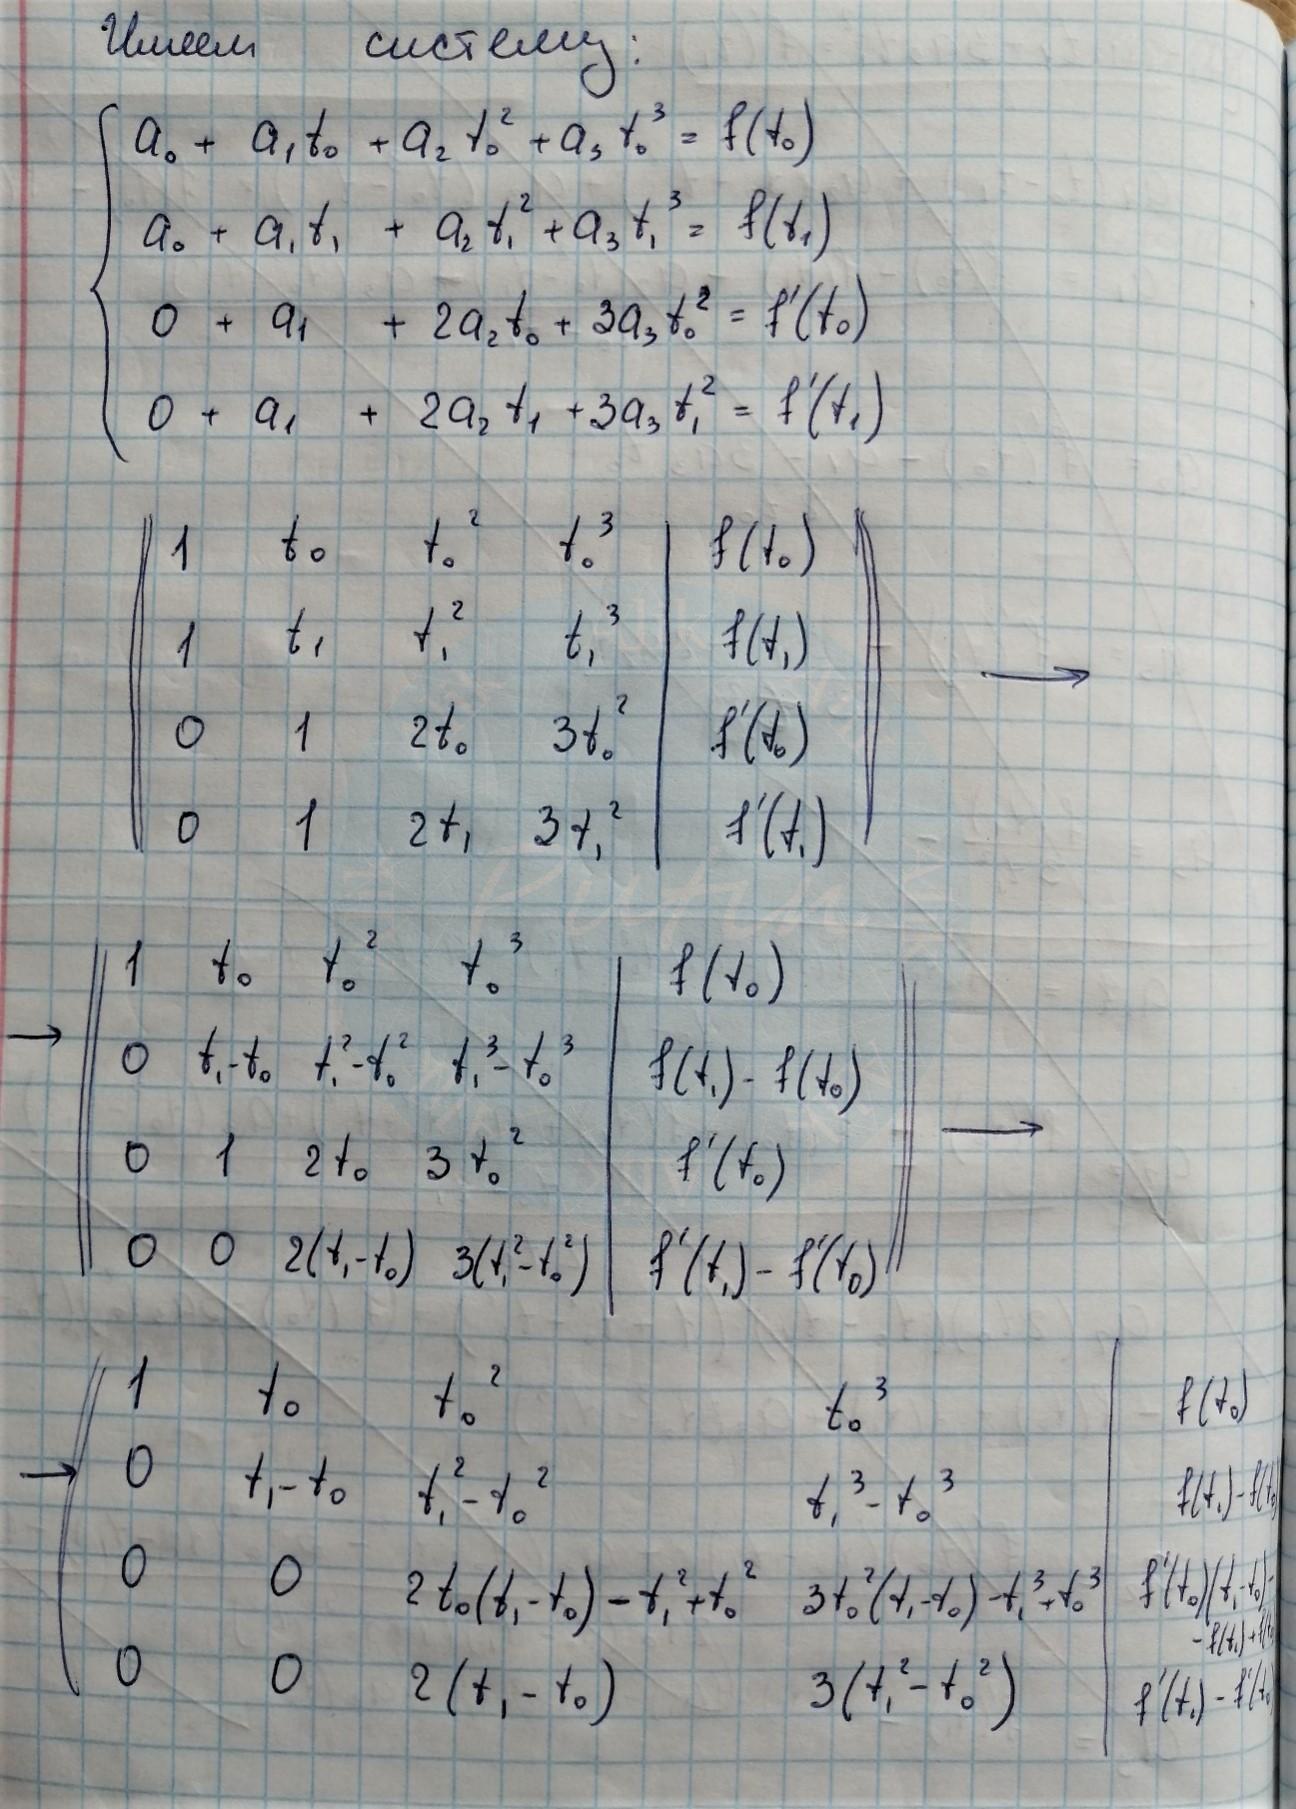 Имеем систему:
a₀ + a₁t₀ + a₂t₀² + a₃t₀³ = f(t₀)
a₀ + a₁t₁ + a₂t₁² + a₃t₁³ = f(t₁)
0 + a₁ + 2a₂t₀ + 3a₃t₀² = f'(t₀)
0 + a₁ + 2a₂t₁ + 3a₃t₁² = f'(t₁)
1 t₀ t₀² t₀³ | f(t₀)
1 t₁ t₁² t₁³ | f(t₁) →
0 1 2t₀ 3t₀² | f'(t₀)
0 1 2t₁ 3t₁² | f'(t₁)
1 t₀ t₀² t₀³ | f(t₀)
→ 0 t₁-t₀ t₁²-t₀² t₁³-t₀³ | f(t₁) - f(t₀) →
0 1 2t₀ 3t₀² | f'(t₀)
0 0 2(t₁-t₀) 3(t₁²-t₀²) | f'(t₁) - f'(t₀)
1 t₀ t₀² t₀³ | f(t₀)
→ 0 t₁-t₀ t₁²-t₀² t₁³-t₀³ | f(t₁)-f(t₀
0 0 2t₀(t₁-t₀)-t₁²+t₀² 3t₀²(t₁-t₀)-t₁³+t₀³ | f'(t₀)(t₁-t₀)-
-f(t₁)+f(t₀
0 0 2(t₁-t₀) 3(t₁²-t₀²) | f'(t₁)-f'(t₀